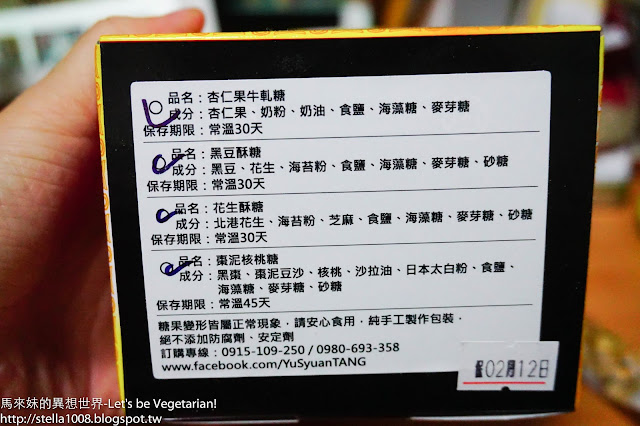 品名：杏仁果牛軋糖
成分：杏仁果、奶粉、奶油、食鹽、海藻糖、麥芽糖
保存期限：常溫30天
品名：黑豆酥糖
成分：黑豆、花生、海苔粉、食鹽、海藻糖、麥芽糖、砂糖
保存期限：常溫30天
品名：花生酥糖
成分：北港花生、海苔粉、芝麻、食鹽、海藻糖、麥芽糖、砂糖
保存期限：常溫30天
品名：棗泥核桃糖
成分：黑棗、棗泥豆沙、核桃、沙拉油、日本太白粉、食鹽、
海藻糖、麥芽糖、砂糖
保存期限：常溫45天
糖果變形皆屬正常現象，請安心食用，純手工製作包裝，
絕不添加防腐劑、安定劑
訂購專線：0915-109-250 / 0980-693-358
www.facebook.com/YuSyuanTANG
02月12日
馬來妹的異想世界-Let's be Vegetarian!
http://stella1008.blogspot.tw